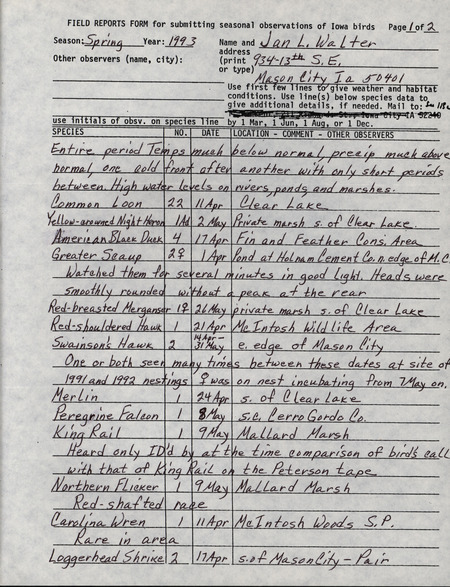 FIELD REPORTS FORM for submitting seasonal observations of Iowa birds Page 1 of 2
Season: Spring Year: 1993 Name and Jan L. Walter
address
Other observers (name, city): (print 934-13th S.E.
or type) Mason City Ia 50401
Use first few lines to give weather and habitat
conditions. Use line(s) below species data to
give additional details, if needed. Mail to:
Iowa City IA 52240
use initials of obsv. on species line by 1 Mar, 1 Jun, 1 Aug, or 1 Dec.
SPECIES NO. DATE LOCATION - COMMENT - OTHER OBSERVERS
Entire period Temps much below normal, precip much above
normal, one cold front after another with only short periods
between. High water levels on rivers, ponds and marshes.
Common Loon 22 11 Apr Clear Lake
Yellow-crowned Night Heron 1Ad 2 May Private marsh s. of Clear Lake.
American Black Duck 4 17 Apr Fin and Feather Cons. Area
Greater Scaup 2♀ 1 Apr Pond at Holnam Cement Co. n. edge of M.C.
Watched them for several minutes in good light. Heads were
smoothly rounded without a peak at the rear
Red-breasted Merganser 1♀ 26 May private marsh s. of Clear Lake
Red-shouldered Hawk 1 21 Apr McIntosh Wildlife Area
Swainson's Hawk 2 14 Apr - 31 May e. edge of Mason City
One or both seen many times between these dates at site of
1991 and 1992 nestings ♀ was on nest incubating from 7 May on.
Merlin 1 24 Apr s. of Clear Lake
Peregrine Falcon 1 8 May s.c. Cerro Gordo Co.
King Rail 1 9 May Mallard Marsh
Heard only ID'd by at the time comparison of bird's call
with that of King Rail on the Peterson tape
Northern Flicker 1 9 May Mallard Marsh
Red-shafted race
Carolina Wren 1 11 Apr McIntosh Woods S.P.
Rare in area
Loggerhead Shrike 2 17 Apr s. of Mason City - Pair